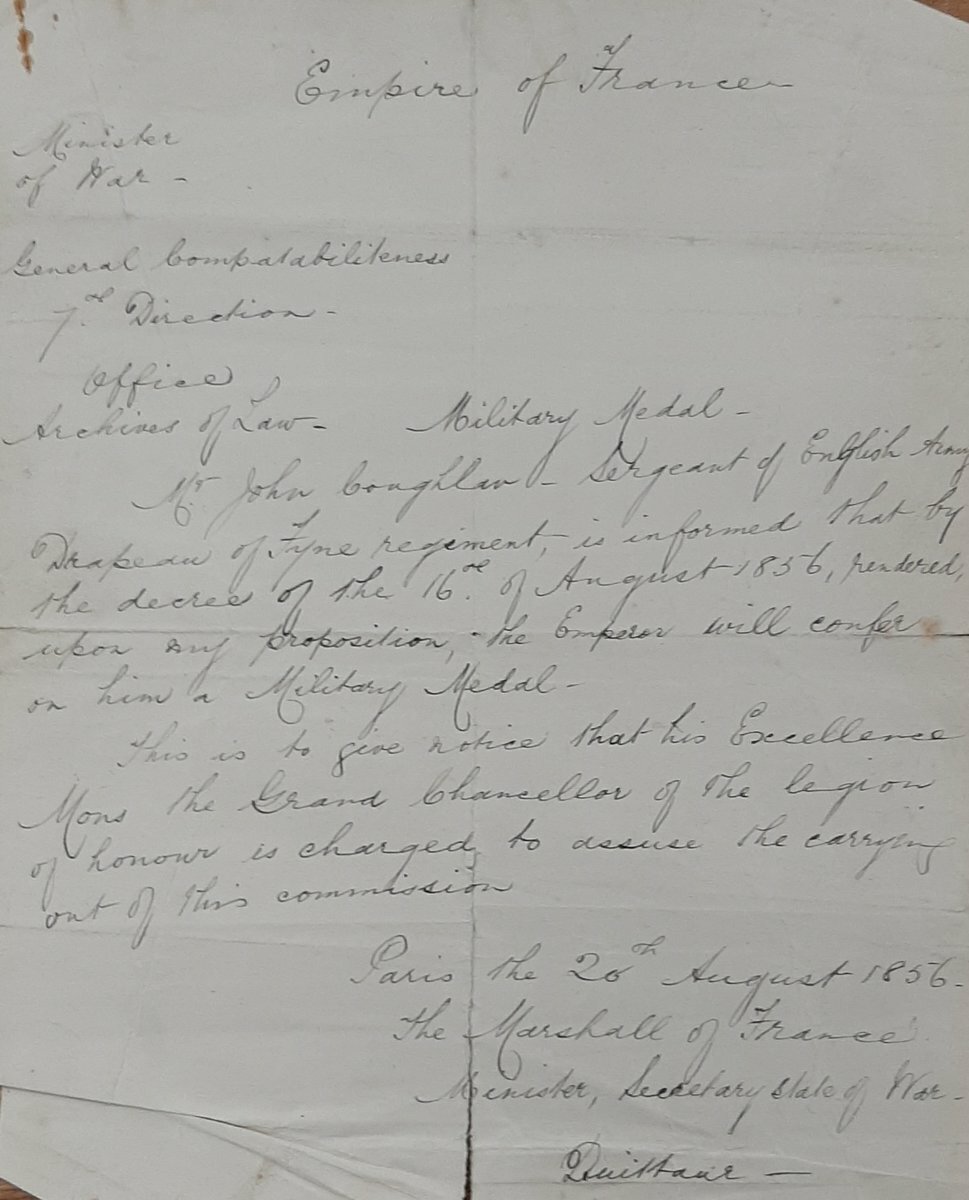 Empire of France
Minister
of War -
General Compatabiliteness
7.th Direction -
Office
Archives of Law -
Military Medal -
Mr. John Coughlan - Sergeant of English Army
Drapeau of Fyne regiment, - is informed that by
the decree of the 16.th of August 1856, rendered,
upon my proposition, - the Emperor will confer
on him a Military Medal -
This is to give notice that his Excellence
Mons the Grand Chancellor of the legion
of honour is charged to assuse the carrying
out of this commission
Paris the 20th August 1856.
The Marshall of France
Minister, Secretary state of War -